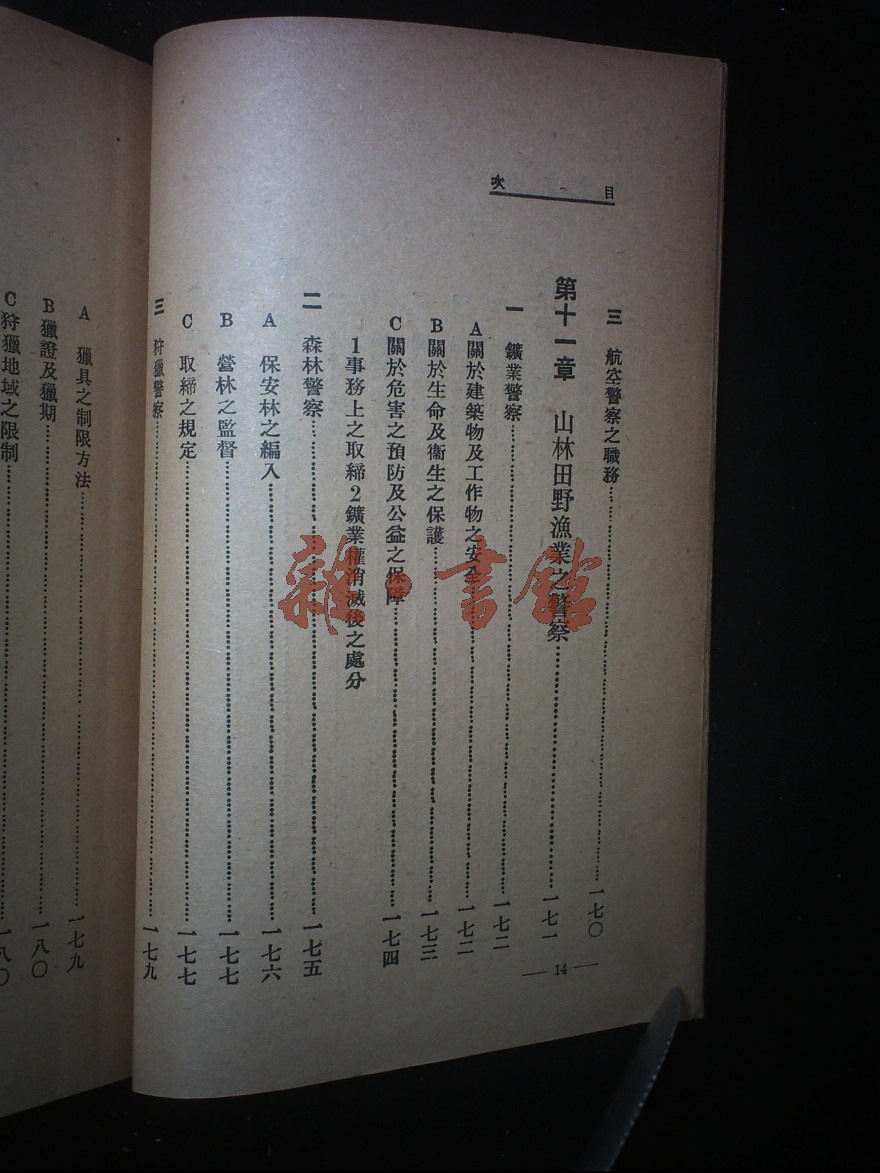 目次
三　航空警察之職務……一七〇
第十一章　山林田野漁業之警察……一七一
一　鑛業警察……一七二
A關於建築物及工作物之安全……一七二
B關於生命及衞生之保護……一七三
C關於危害之預防及公益之保障……一七四
1事務上之取締2鑛業權消滅後之處分
二　森林警察……一七五
A　保安林之編入……一七六
B　營林之監督……一七七
C　取締之規定……一七七
三　狩獵警察……一七九
— 14 —
A　獵具之制限方法……一七九
B獵證及獵期……一八〇
C狩獵地域之限制……一八〇
雜·書館